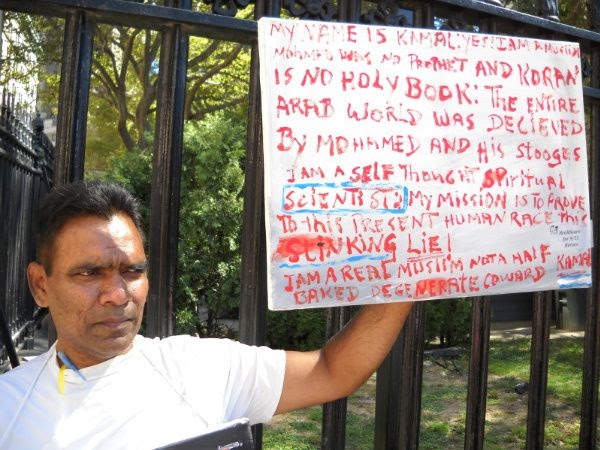 MY NAME IS KAMAL: YES! I AM A MUSLIM
MOHAMED WAS NO PROPHET AND KORAN
IS NO HOLY BOOK: THE ENTIRE
ARAB WORLD WAS DECIEVED
BY MOHAMED AND HIS STOOGES
I AM A SELF THOUGHT SPIRITUAL
SCIENTIST: MY MISSION IS TO PROVE
TO THIS PRESENT HUMAN RACE THIS
STINKING LIE!
I AM A REAL MUSLIM NOT A HALF KAMAL
BAKED DEGENERATE COWARD
Healthcare
for 9/11